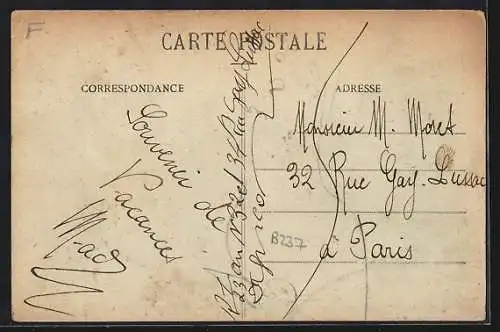 F
CARTE POSTALE
CORRESPONDANCE
ADRESSE
Souvenir de
Vacances
Mad
Monsieur M. Moret
32 Rue Gay-Lussac
à Paris
B237